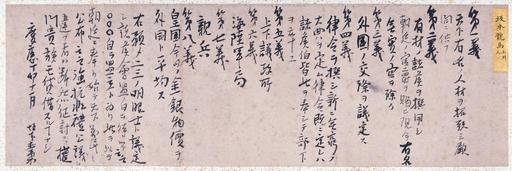 第一義
天下有名ノ人材ヲ招致シ顧
問ニ供フ
第二義
有材ノ諸侯ヲ撰用シ
朝廷ノ官爵ヲ賜ヒ現今有名
無実ノ官ヲ除ク
第三義
外国ノ交際ヲ議定ス
第四義
律令ヲ撰シ新ニ無窮ノ
大典ヲ定ム律令既ニ定レハ
諸侯伯皆此ヲ奉シテ部下
ヲ率ユ
第五義
上下議政所
第六義
海陸軍局
第七義
親兵
第八義
皇国今日ノ金銀物価ヲ
外国ト平均ス
右預メ二三ノ明眼士ト議定
シ諸侯会盟ノ日ヲ待ツテ云々
○○○自ラ盟主ト為リ此ヲ以テ
朝廷ニ奉リ始テ天下萬民ニ
公布云々強抗非礼公議ニ
違フ者ハ断然征討ス権
門貴族モ貸借スルコトナシ
慶應丁卯十一月 坂本直柔
坂本龍馬